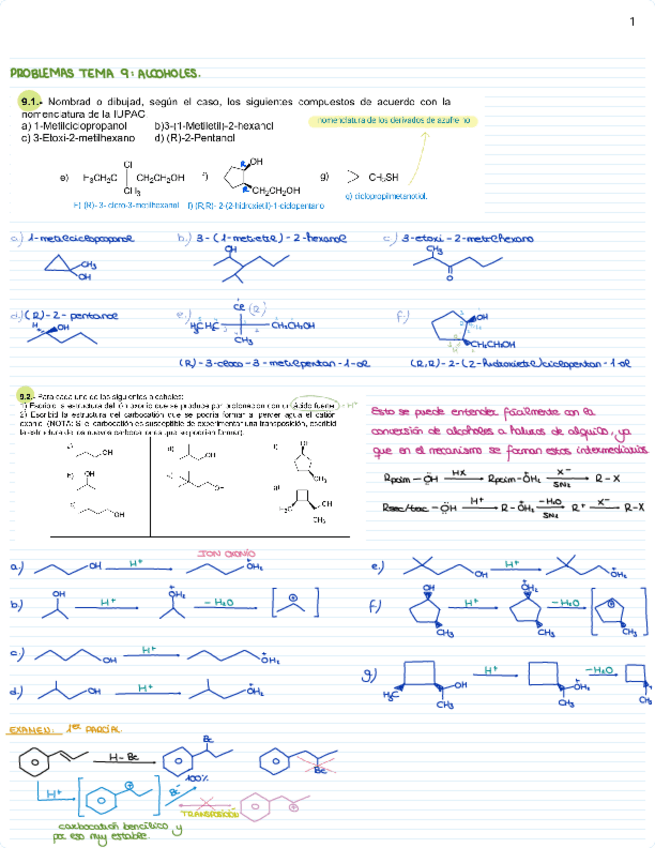 1
PROBLEMAS TEMA 9: ALCOHOLES.
9.1.- Nombrad o dibujad, según el caso, los siguientes compuestos de acuerdo con la
nomenclatura de la IUPAC
nomenclatura de los derivados de azufre no
a) 1-Metilciclopropanol b)3-(1-Metiletil)-2-hexanol
c) 3-Etoxi-2-metilhexano d) (R)-2-Pentanol
Cl
e) H₃CH₂C CH₂CH₂OH f) OH g) CH₂SH
CH₃ CH₂CH₂OH
f) (R,R)-2-(2-hidroxietil)-1-ciclopentano
g) ciclopropilmetanotiol.
a) 1-metilciclopropanol b.) 3-(1-metiletil)-2-hexanol c) 3-etoxi-2-metilhexano
CH₃ OH CH₃
OH O
d) (R)-2-pentanol e.) Cl (R) f)
H OH CH₂CH₂OH OH
CH₃ CH₂CH₂OH
(R)-3-cloro-3-metilpentan-1-ol (R,R)-2-(2-hidroxietil)ciclopentan-1-ol
9.2.- Para cada uno de los siguientes alcoholes:
1) Escribid la estructura del ión oxonio que se produce por protonación con un ácido fuerte. H⁺
2) Escribid la estructura del carbocatión que se podría formar al perder agua el catión
oxonio. (NOTA: Si el carbocatión es susceptible de experimentar una transposición, escribid
la estructura de los nuevos carbocationes que se podrían formar).
Esto se puede entender fácilmente con la
conversión de alcoholes a haluros de alquilo, ya
que en el mecanismo se forman estos intermediarios
Rprim-ÖH HX Rprim-ÖH₂ X⁻ SN2 R-X
Rsec/terc-ÖH H⁺ R-ÖH₂ -H₂O SN1 R⁺ X⁻ R-X
ION OXONIO
a.) OH H⁺ OH₂ e.) OH H⁺ OH₂
b) OH H⁺ OH₂ -H₂O f.) OH H⁺ OH₂ -H₂O
CH₃ CH₃ CH₃
c.) OH H⁺ OH₂
d.) OH H⁺ OH₂ g) H₃C OH CH₃ H⁺ OH₂ CH₃ -H₂O CH₃
EXAMEN: 1er PARCIAL.
H-Br Br Br
100%
H⁺ Br⁻
TRANSPOSICIÓN
carbocatión bencílico y
por eso muy estable.